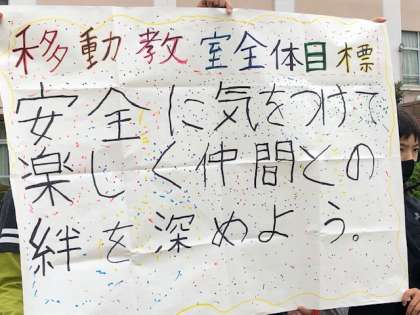 移動教室全体目標
安全に気をつけて
楽しく仲間との
絆を深めよう。